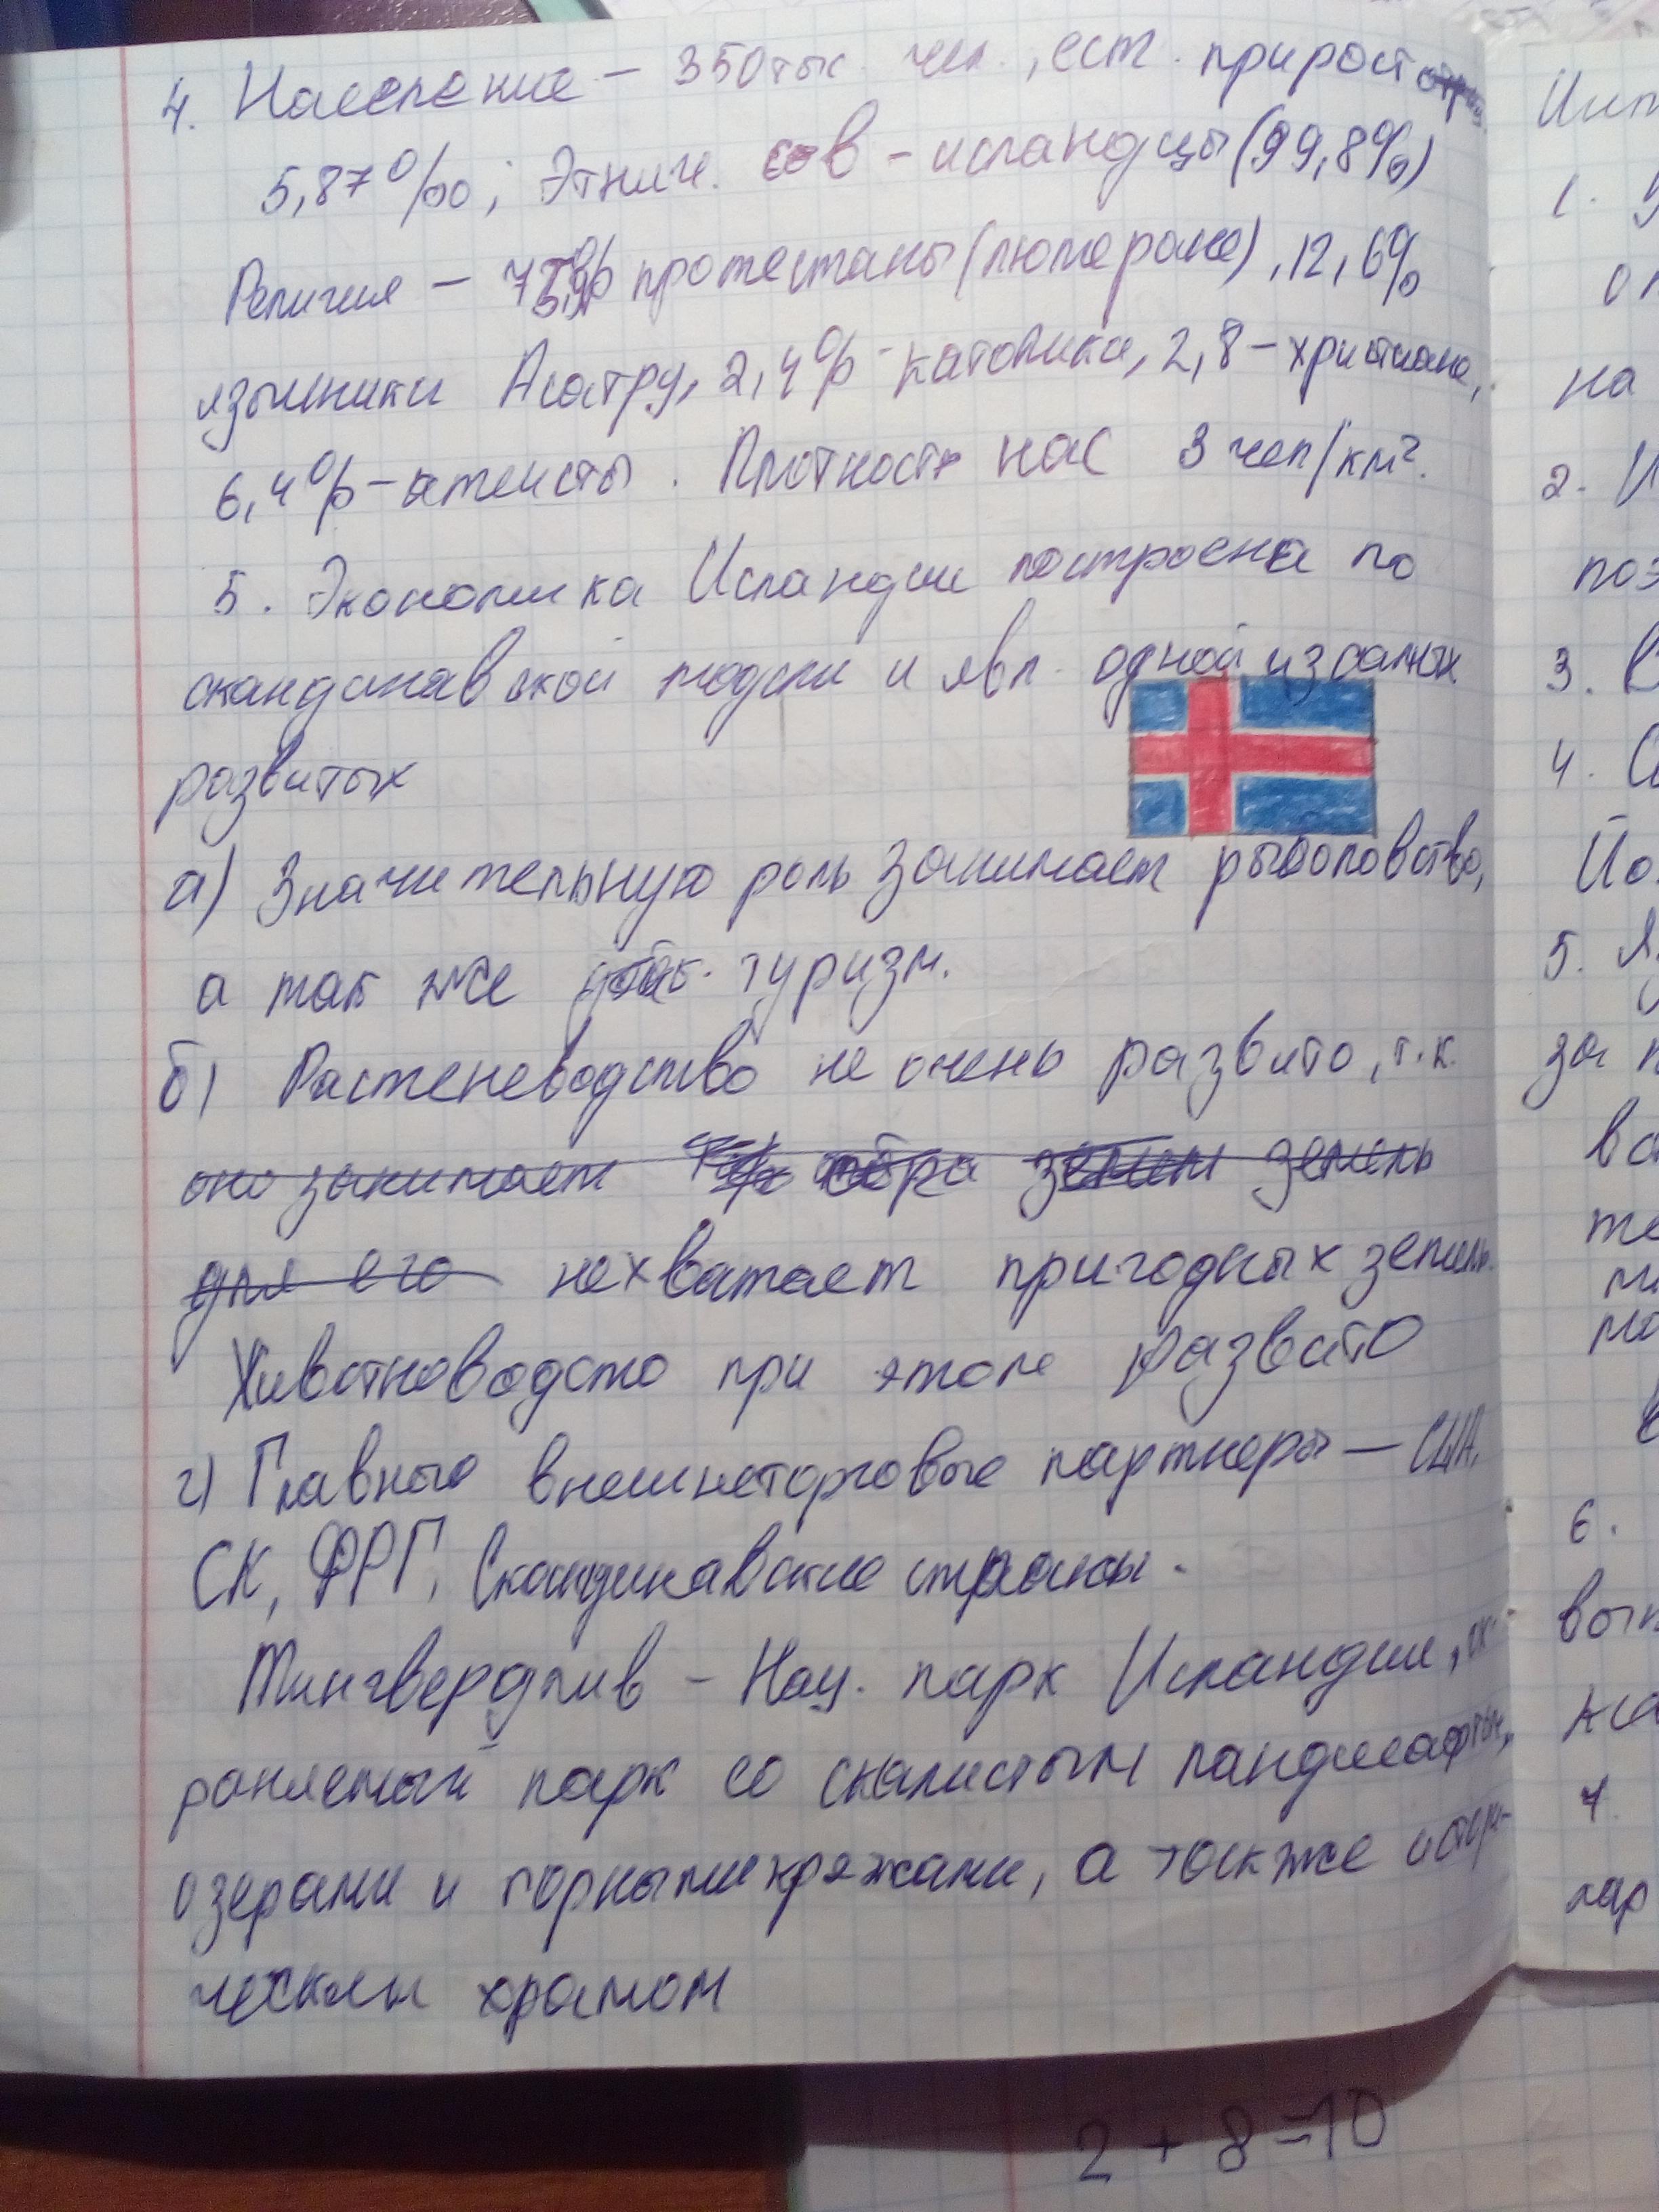 4. Население – 350 тыс. чел., ест. прирост
5,87‰; Этнич. сов – исландцы (99,8%)
Религия – % протестаны (лютеране), 12,6%
язычники Асатру, 2,4% - католики, 2,8 – христиане,
6,4% – атеисты. Плотность нас 3 чел/км².
5. Экономика Исландии построена по
скандинавской модели и явл. одной из самых
развитых
а) Значительную роль занимает рыболовство,
а так же туризм.
б) Растеневодство не очень развито, т.к.
оно занимает земель
для его нехватает пригодных земель.
Животноводсто при этом развито
г) Главные внешнеторговые партнеры – США,
СК, ФРГ, Скандинавские страны.
Тингведлив – Нац. парк Исландии, ох-
раняемый парк со скалистым ландшафтом,
озерами и горными кряжами, а также истори-
ческим храмом
1.
на
2. И
поэ
3.
4.
Йо
5. Я
за
ва
6.
7.
2 + 8 = 10